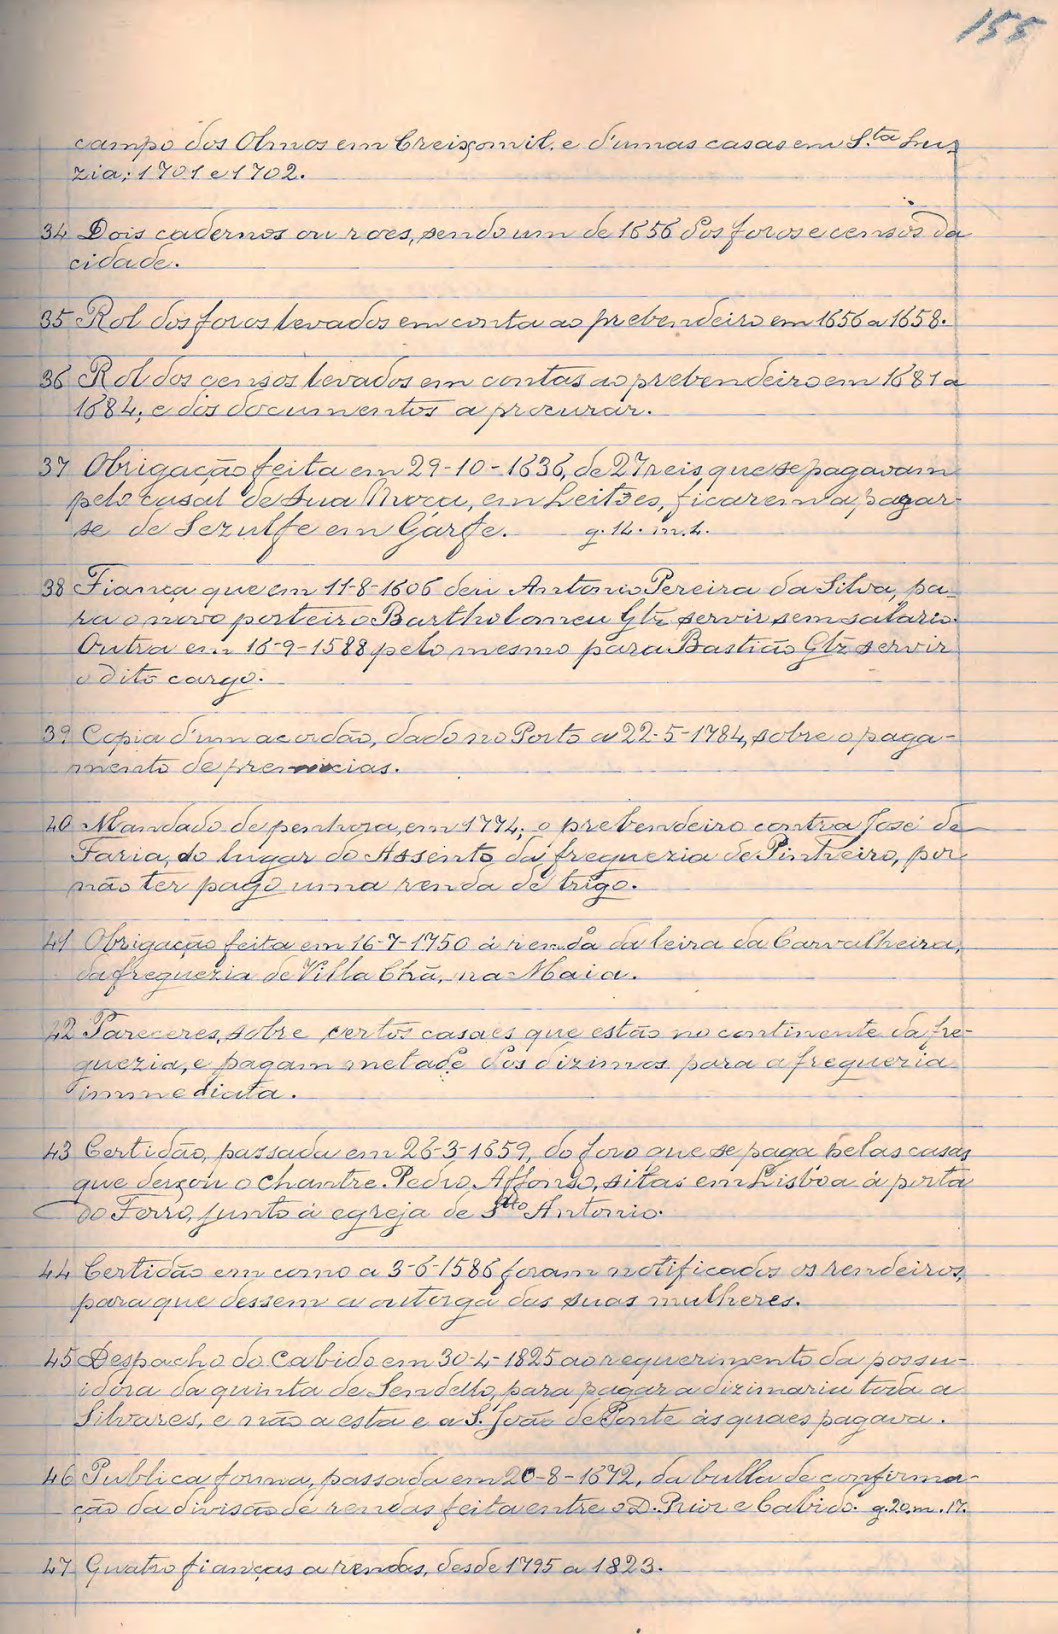 155
campo dos Olmos em Creixomil. e d'umas casas em S.ta Lu-
zia; 1701 e 1702.
34 Dois cadernos ou roes, sendo um de 1656 dos foros e censos da
cidade.
35 Rol dos foros levados em conta ao prebendeiro em 1656 a 1658.
36 Rol dos censos levados em contas ao prebendeiro em 1681 a
1684; e dos documentos a procurar.
37 Obrigação feita em 29-10-1636, de 27 reis que se pagavam
pelo casal de Sua Moura, em Leitões, ficarem a pagar-
se de Sezulfe em Gárfe. g. 14. m. 4.
38 Fiança que em 11-8-1606 deu Antonio Pereira da Silva, pa-
ra o novo porteiro Bartholomeu Glz servir sem salario.
Outra em 16-9-1588 pelo mesmo para Bastião Glz servir
o dito cargo.
39 Copia d'um acordão, dado no Porto a 22-5-1784, sobre o paga-
mento de premicias.
40 Mandado de penhora, em 1774; o prebendeiro contra José de
Faria, do lugar do Assento da freguezia de Pinheiro, por
não ter pago uma renda de trigo.
41 Obrigação feita em 16-7-1750 á renda da leira da Carvalheira,
da freguezia de Villa Chã, na Maia.
42 Pareceres, sobre certos casaes que estão no continente da fre-
guezia, e pagam metade dos dizimos para a freguezia
immediata.
43 Certidão, passada em 26-3-1659, do foro que se paga pelas casas
que deixou o chantre Pedro Affonso, sitas em Lisboa á porta
do Ferro, junto á egreja de Sto Antonio.
44 Certidão em como a 3-6-1586 foram notificados os rendeiros,
para que dessem a outorga das suas mulheres.
45 Despacho do Cabido em 30-4-1825 ao requerimento da possu-
idora da quinta de Sendello, para pagar a dizimaria toda a
Silvares, e não a esta e a S. João de Ponte ás quaes pagava.
46 Publica forma, passada em 20-8-1672, da bulla de confirma-
ção da divisão de rendas feita entre o D. Prior e Cabido. g. 20. m. 17.
47 Quatro fianças a rendas, desde 1795 a 1823.